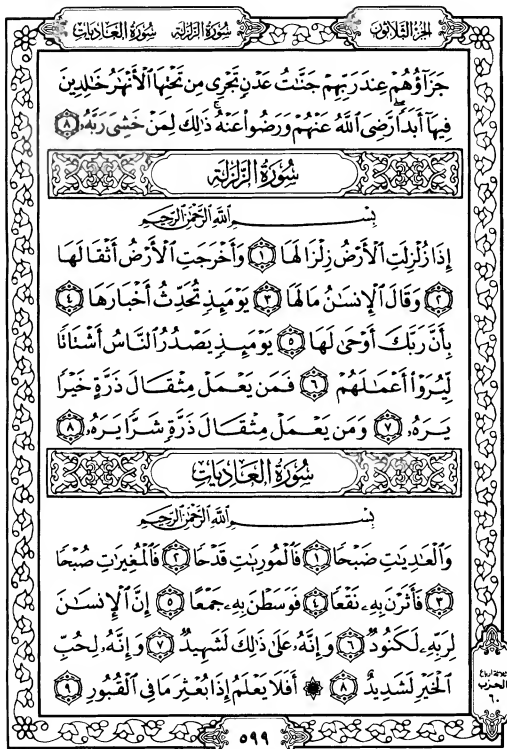 سُورَةُ الزَّلْزَلَةِ سُورَةُ الْعَادِيَاتِ الجُزْءُ الثَّلَاثُونَ
جَزَآؤُهُمْ عِندَ رَبِّهِمْ جَنَّٰتُ عَدْنٍ تَجْرِى مِن تَحْتِهَا ٱلْأَنْهَٰرُ خَٰلِدِينَ
فِيهَآ أَبَدًا رَّضِىَ ٱللَّهُ عَنْهُمْ وَرَضُوا۟ عَنْهُ ذَٰلِكَ لِمَنْ خَشِىَ رَبَّهُۥ ٨
سُورَةُ الزَّلْزَلَةِ
بِسْمِ ٱللَّهِ ٱلرَّحْمَٰنِ ٱلرَّحِيمِ
إِذَا زُلْزِلَتِ ٱلْأَرْضُ زِلْزَالَهَا ١ وَأَخْرَجَتِ ٱلْأَرْضُ أَثْقَالَهَا
٢ وَقَالَ ٱلْإِنسَٰنُ مَا لَهَا ٣ يَوْمَئِذٍ تُحَدِّثُ أَخْبَارَهَا ٤
بِأَنَّ رَبَّكَ أَوْحَىٰ لَهَا ٥ يَوْمَئِذٍ يَصْدُرُ ٱلنَّاسُ أَشْتَاتًا
لِّيُرَوْا۟ أَعْمَٰلَهُمْ ٦ فَمَن يَعْمَلْ مِثْقَالَ ذَرَّةٍ خَيْرًا
يَرَهُۥ ٧ وَمَن يَعْمَلْ مِثْقَالَ ذَرَّةٍ شَرًّا يَرَهُۥ ٨
سُورَةُ الْعَادِيَاتِ
بِسْمِ ٱللَّهِ ٱلرَّحْمَٰنِ ٱلرَّحِيمِ
وَٱلْعَٰدِيَٰتِ ضَبْحًا ١ فَٱلْمُورِيَٰتِ قَدْحًا ٢ فَٱلْمُغِيرَٰتِ صُبْحًا
٣ فَأَثَرْنَ بِهِۦ نَقْعًا ٤ فَوَسَطْنَ بِهِۦ جَمْعًا ٥ إِنَّ ٱلْإِنسَٰنَ
لِرَبِّهِۦ لَكَنُودٌ ٦ وَإِنَّهُۥ عَلَىٰ ذَٰلِكَ لَشَهِيدٌ ٧ وَإِنَّهُۥ لِحُبِّ
ٱلْخَيْرِ لَشَدِيدٌ ٨ ۞ أَفَلَا يَعْلَمُ إِذَا بُعْثِرَ مَا فِى ٱلْقُبُورِ ٩
ثلاثة أرباع
الحزب
٦٠
٥٩٩